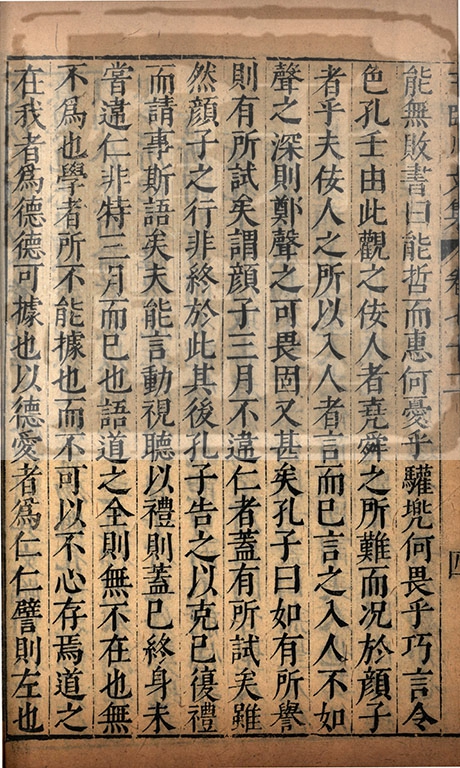 能無敗書曰能哲而惠何憂乎驩兠何畏乎巧言令
色孔壬由此觀之佞人者堯舜之所難而况於顔子
者乎夫佞人之所以入人者言而已言之入人不如
聲之深則鄭聲之可畏固又甚矣孔子曰如有所譽
則有所試矣謂顔子三月不違仁者蓋有所試矣雖
然顔子之行非終於此其後孔子告之以克己復禮
而請事斯語矣夫能言動視聽以禮則蓋已終身未
嘗違仁非特三月而已也語道之全則無不在也無
不爲也學者所不能據也而不可以不心存焉道之
在我者爲德德可據也以德愛者爲仁仁譬則左也